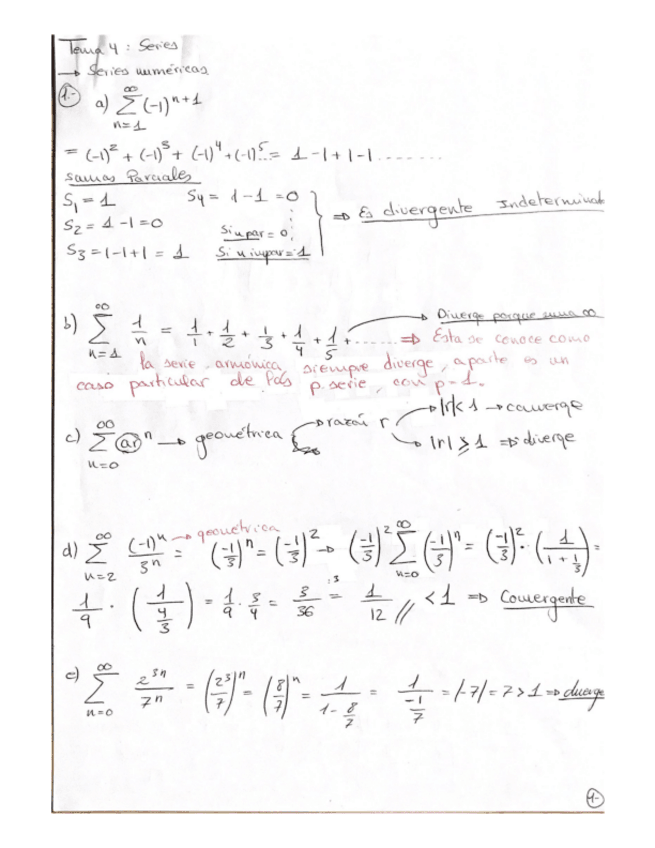 Tema 4 : Series
→ Series numéricas
1.- a) ∑_{n=1}^{∞} (-1)^{n+1}
= (-1)^2 + (-1)^3 + (-1)^4 + (-1)^5... = 1 -1 + 1 -1 ........
Sumas Parciales
S_1 = 1 S_4 = 1-1 = 0
S_2 = 1 -1 = 0 Si n par = 0
S_3 = 1-1+1 = 1 Si n impar = 1
⇒ Es divergente Indeterminad
b) ∑_{n=1}^{∞} 1/n = 1/1 + 1/2 + 1/3 + 1/4 + 1/5 + ....... → Diverge porque suma ∞
⇒ Esta se conoce como
la serie armónica, siempre diverge, aparte es un
caso particular de las p.serie, con p=1.
c) ∑_{n=0}^{∞} ar^n → geométrica → razón r → |r| < 1 → converge
→ |r| ≥ 1 ⇒ diverge
d) ∑_{n=2}^{∞} (-1)^n/3^n → geométrica = (-1/3)^n = (-1/3)^2 → (-1/3)^2 ∑_{n=0}^{∞} (-1/3)^n = (-1/3)^2 · (1/(1 + 1/3)) =
1/9 · (1/(4/3)) = 1/9 · 3/4 = 3/36 :3 = 1/12 // < 1 ⇒ Convergente
e) ∑_{n=0}^{∞} 2^{3n}/7^n = (2^3/7)^n = (8/7)^n = 1/(1 - 8/7) = 1/(-1/7) = |-7| = 7 > 1 ⇒ diverge
1-